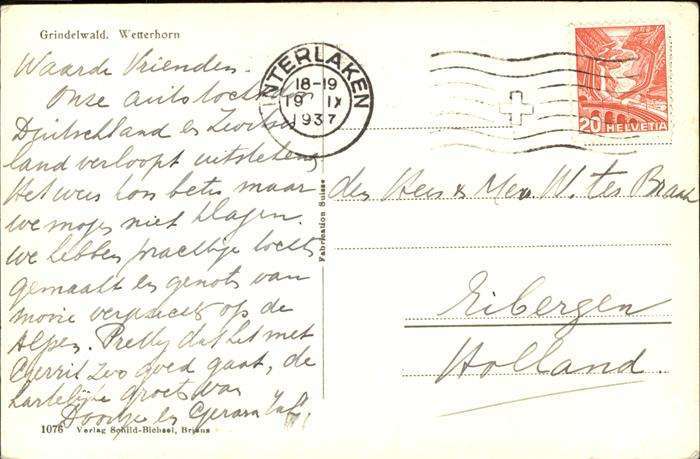 Grindelwald. Wetterhorn
Waarde Vrienden.
Onze autotocht door
Duitschland en Zwitser
land verloopt uitstekend
Het weer kon beter maar
we mogen niet klagen.
We hebben prachtige tocht
gemaakt en genoten van
mooie vergezicht op de
Alpen. Prettig dat het met
Gerrit zoo goed gaat, de
hartelijke groet van
Doortje en Gerard
1076 Verlag Schild-Bichsel, Brienz
INTERLAKEN
18-19
19 IX
1937
20 HELVETIA
Fabrication Suisse
den Heer & Mev W. ter Braak
Eibergen
Holland.